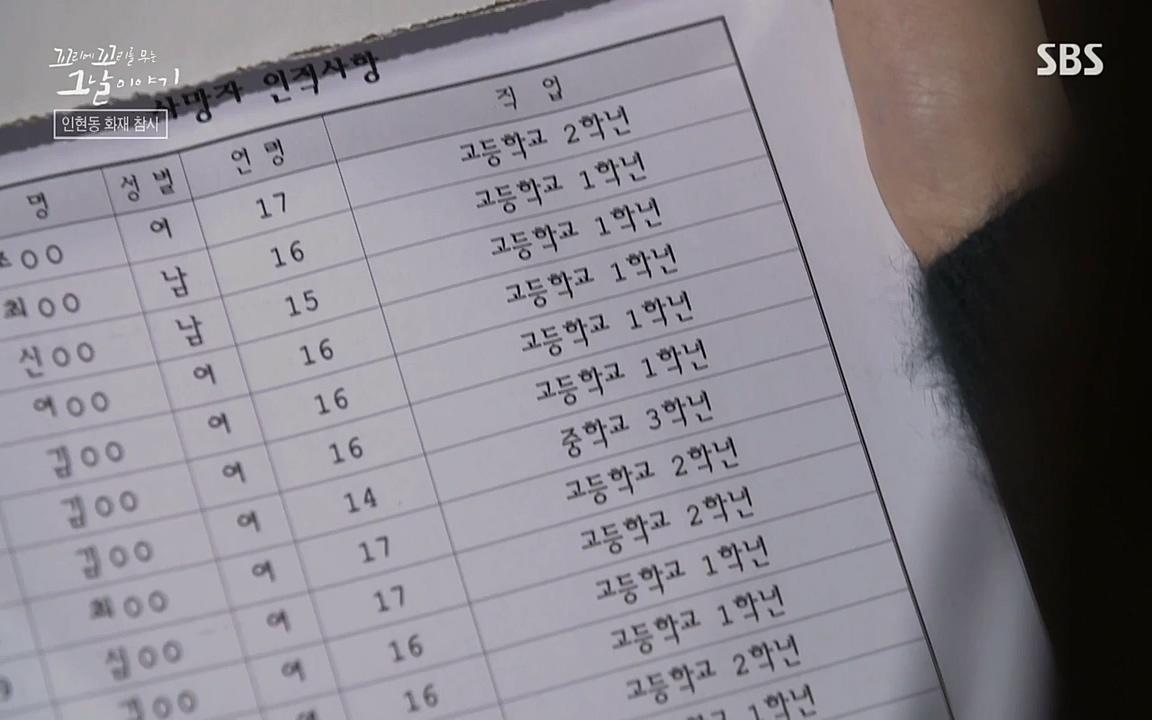 꼬리에 꼬리를 무는
그날 이야기
인현동 화재 참사
SBS
사망자 인적사항
명 성 별 연 령 직 업
OO 여 17 고등학교 2학년
최OO 남 16 고등학교 1학년
신OO 남 15 고등학교 1학년
여OO 여 16 고등학교 1학년
김OO 여 16 고등학교 1학년
김OO 여 16 고등학교 1학년
김OO 여 14 중학교 3학년
최OO 여 17 고등학교 2학년
심OO 여 17 고등학교 2학년
김OO 여 16 고등학교 1학년
16 고등학교 1학년
고등학교 2학년
1학년